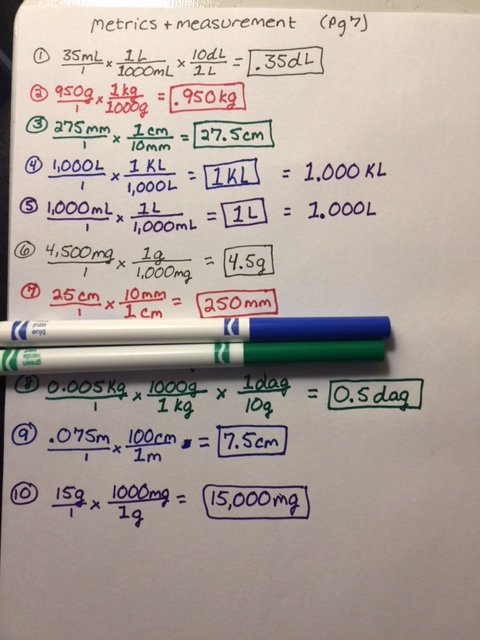 metrics + measurement (pg 7)
① 35mL/1 × 1L/1000mL × 10dL/1L = .35dL
② 950g/1 × 1kg/1000g = .950kg
③ 275mm/1 × 1cm/10mm = 27.5cm
④ 1,000L/1 × 1KL/1,000L = 1KL = 1.000 KL
⑤ 1,000mL/1 × 1L/1,000mL = 1L = 1.000L
⑥ 4,500mg/1 × 1g/1,000mg = 4.5g
⑦ 25cm/1 × 10mm/1cm = 250mm
blue
azul
green
verde
⑧ 0.005Kg/1 × 1000g/1kg × 1dag/10g = 0.5dag
⑨ .075m/1 × 100cm/1m = 7.5cm
⑩ 15g/1 × 1000mg/1g = 15,000mg